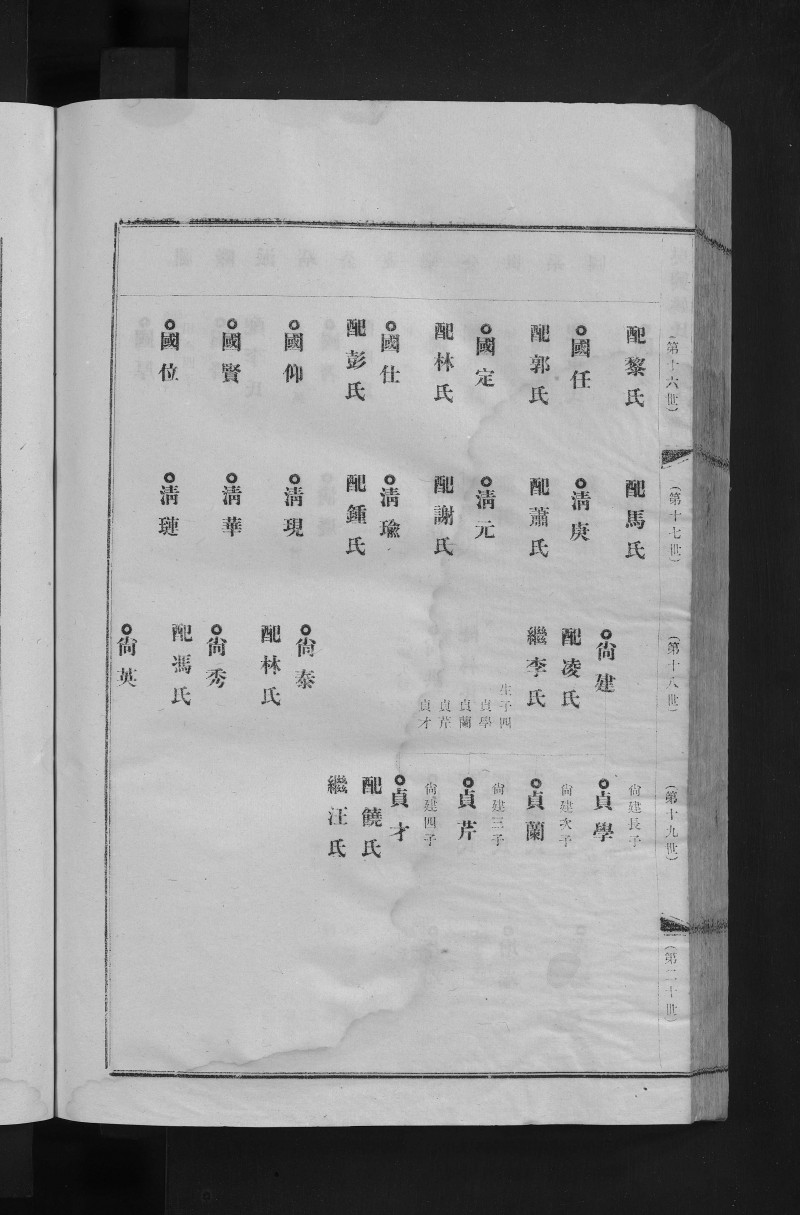 (第十六世)
配黎氏
國任
配郭氏
國定
配林氏
國仕
配彭氏
國仰
國賢
國位
(第十七世)
配馬氏
淸庚
配蕭氏
淸元
配謝氏
淸瑜
配鍾氏
淸現
淸華
淸璉
(第十八世)
尙建
配凌氏
繼李氏
生子四
貞學
貞蘭
貞芹
貞才
尙泰
配林氏
尙秀
配馮氏
尙英
(第十九世)
尙建長子
貞學
尙建次子
貞蘭
尙建三子
貞芹
尙建四子
貞才
配饒氏
繼汪氏
(第二十世)